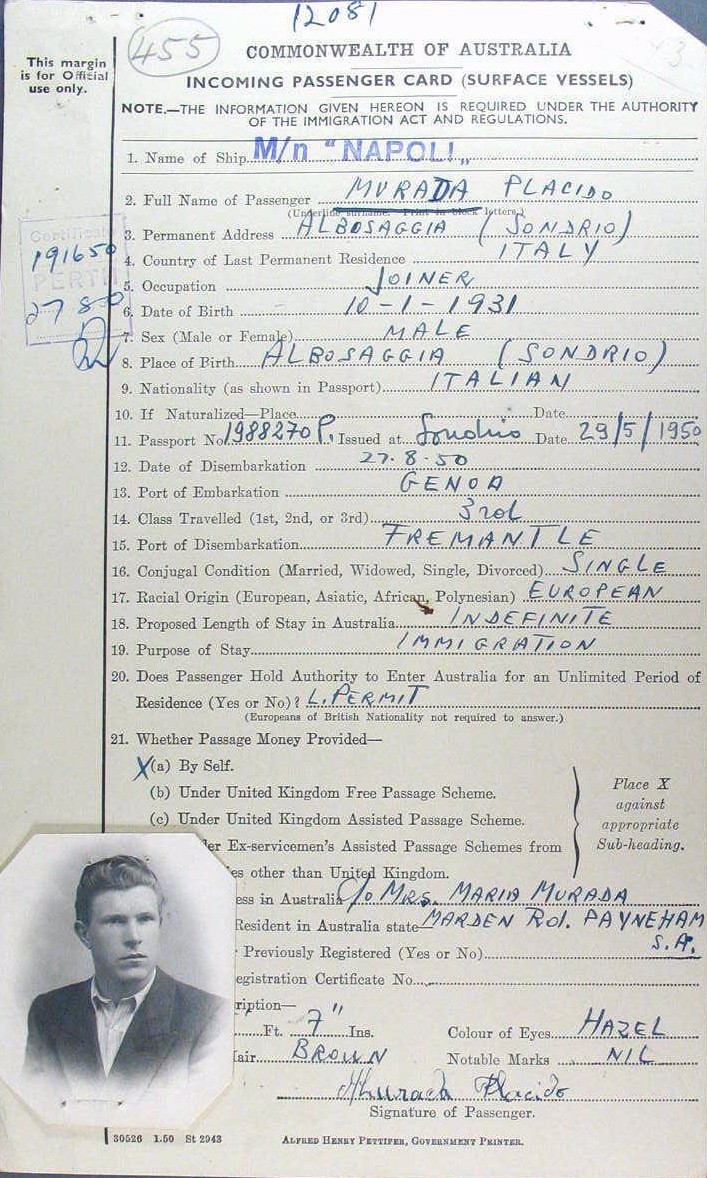 12081
455
This margin
is for Official
use only.
COMMONWEALTH OF AUSTRALIA
INCOMING PASSENGER CARD (SURFACE VESSELS)
NOTE.—THE INFORMATION GIVEN HEREON IS REQUIRED UNDER THE AUTHORITY
OF THE IMMIGRATION ACT AND REGULATIONS.
1. Name of Ship M/n "NAPOLI„
2. Full Name of Passenger MURADA PLACIDO
(Underline surname. Print in block letters.)
3. Permanent Address ALBOSAGGIA (SONDRIO)
Certificate
191650
PERTH
27 8 50
4. Country of Last Permanent Residence ITALY
5. Occupation JOINER
6. Date of Birth 10-1-1931
7. Sex (Male or Female) MALE
8. Place of Birth ALBOSAGGIA (SONDRIO)
9. Nationality (as shown in Passport) ITALIAN
10. If Naturalized—Place Date
11. Passport No 1988270 P. Issued at Sondrio Date 29/5/1950
12. Date of Disembarkation 27.8.50
13. Port of Embarkation GENOA
14. Class Travelled (1st, 2nd, or 3rd) 3rd
15. Port of Disembarkation FREMANTLE
16. Conjugal Condition (Married, Widowed, Single, Divorced) SINGLE
17. Racial Origin (European, Asiatic, African, Polynesian) EUROPEAN
18. Proposed Length of Stay in Australia INDEFINITE
19. Purpose of Stay IMMIGRATION
20. Does Passenger Hold Authority to Enter Australia for an Unlimited Period of
Residence (Yes or No)? L. PERMIT
(Europeans of British Nationality not required to answer.)
21. Whether Passage Money Provided—
X (a) By Self.
(b) Under United Kingdom Free Passage Scheme.
(c) Under United Kingdom Assisted Passage Scheme.
er Ex-servicemen's Assisted Passage Schemes from
es other than United Kingdom.
Place X
against
appropriate
Sub-heading.
ess in Australia c/o MRS. MARIA MURADA
Resident in Australia state— MARDEN Rd. PAYNEHAM
S.A.
Previously Registered (Yes or No)
egistration Certificate No.
ription—
Ft. 7" Ins. Colour of Eyes HAZEL
air BROWN Notable Marks NIL
Murada Placido
Signature of Passenger.
30526 1.50 St 2943 ALFRED HENRY PETTIFER, GOVERNMENT PRINTER.